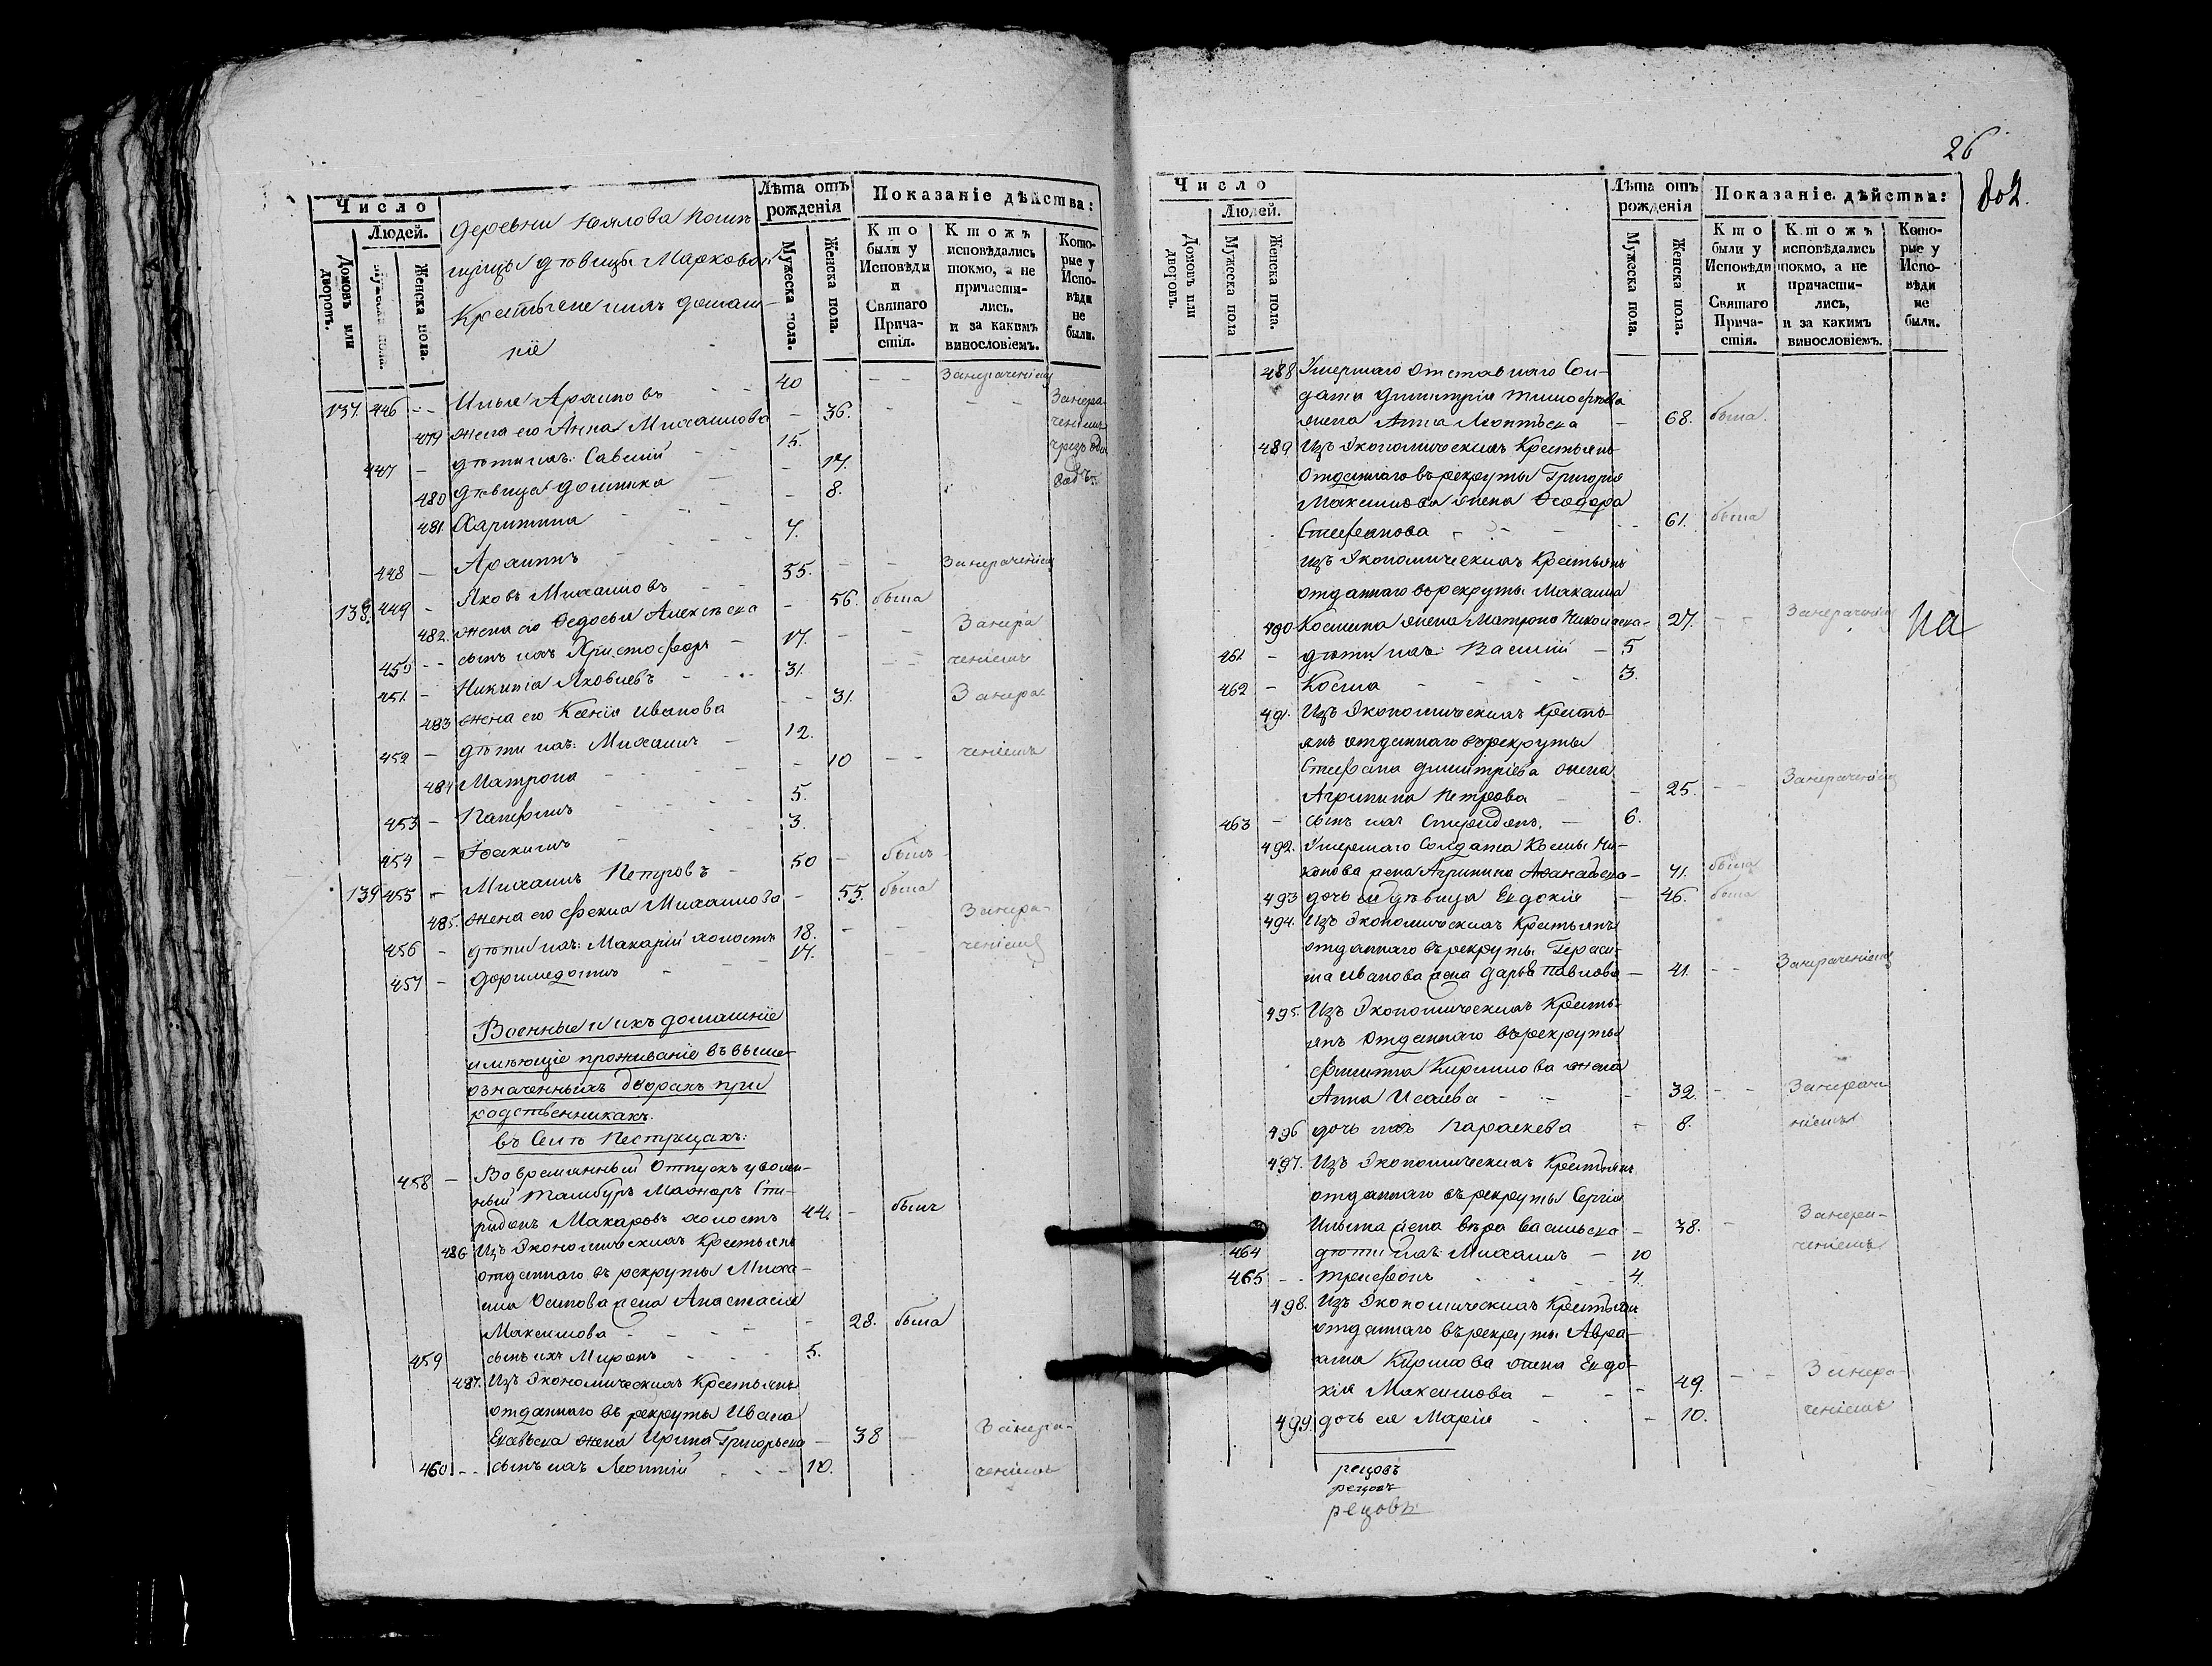 Число
Людей.
Домовъ или дворовъ.
Мужеска пола.
Женска пола.
деревни Нялова Помѣ-
щицы дѣвицы Марковой
Крестьяне ихъ домаш-
ніе
Лѣта отъ рожденія
Мужеска пола.
Женска пола.
Показаніе дѣйства:
Кто были у Исповѣди и Святаго Причастія.
Ктожъ исповѣдались токмо, а не причастились. и за какимъ винословіемъ.
Которые у Исповѣди не были.
137. 446 - - Илья Архиповъ - - 40 - - Занераченіемъ
479 жена его Анна Михаилова - 36. - - - Занера-
ченіемъ
447 - дѣти ихъ: Савелій - - 15.
480 дѣвица Домника - - 17.
481. Харитина - - - 8.
448 - Архипъ - - 7.
138. 449 - Яковъ Михаиловъ - - 55. - - Занераченіемъ
482. жена его Федосья Алексѣева - 56. была
450 - - сынъ ихъ Христофоръ - 17. - - Занера
451. - Никита Яковлевъ - - - 31. - - ченіемъ
483 жена его Ксенія Иванова - - 31. Занера-
452 - дѣти ихъ: Михаилъ - 12.
484 Матрона - - - - 10 - - ченіемъ
453 - Панфилъ - - - - 5.
454 - Іоакимъ - - - 3.
139 455 - Михаилъ Петровъ - 50 - былъ
485. жена его Фекла Михаилова - 55. была
456 - дѣти ихъ: Макарій холостъ 18. - - Занера-
457 - Доримедонтъ - - - 17. - ченіемъ
Военные и ихъ домашніе
имѣющіе проживаніе въ выше
означенныхъ дворахъ при
родственникахъ.
въ Селѣ Пестрицахъ:
458 - Во времянный отпускъ уволен-
ный Тамбуръ Маіоръ Спи-
ридонъ Макаровъ холостъ 44. - былъ
486 Изъ Экономическихъ Крестьянъ
отданнаго въ рекруты Миха-
ила Осипова жена Анастасія
Максимова - - - - 28. была
459 сынъ ихъ Миронъ - - - 5.
487. Изъ Экономическихъ Крестьянъ
отданнаго въ рекруты Ивана
жена Ирина Григорьева - 38 - Занера-
460 - - сынъ ихъ Леонтій - - - 10. ченіемъ
26
802.
Число
Людей.
Домовъ или дворовъ.
Мужеска пола
Женска пола.
Лѣта отъ рожденія
Мужеска пола.
Женска пола.
Показаніе дѣйства:
Кто были у Исповѣди и Святаго Причастія.
Ктожъ исповѣдались токмо, а не причастились, и за какимъ винословіемъ.
Которые у Исповѣди не были.
488 Умершаго отставнаго Сол-
дата Димитрія Тимофѣева
жена Анна Леонтьева - 68. была.
489 Изъ Экономическихъ Крестьянъ
отданнаго въ рекруты Григорія
Максимова жена Ѳеодора
Стефанова - - - - 61. была
изъ Экономическихъ Крестьянъ
отданнаго въ рекруты Михаила
490 Космина жена Матрона Николаева - 27. - - Занераченіемъ
на
461 - дѣти ихъ: Василій - 5
462 - Косма - - - - 3.
491. Изъ Экономическихъ Кресть-
янъ отданнаго въ рекруты
Стефана Димитріева жена
Агрипина Петрова - - 25. - - Занераченіемъ
463 - сынъ ихъ Спиридонъ. - 6.
492. Умершаго Солдата Космы Ни-
конова жена Агрипина Аѳанасьева - 71. была
493 дочь ея дѣвица Евдокія - 46. была
494. Изъ Экономическихъ Крестьянъ
отданнаго въ рекруты Гераси-
ма Иванова жена Дарья Павлова - 41. - - Занераченіемъ
495. Изъ Экономическихъ Кресть-
янъ отданнаго въ рекруты
Филиппа Кирилова жена
Анна Исаева - - - 32. - - Занераче
496 дочь ихъ Параскева - 8. ніемъ
497. Изъ Экономическихъ Крестьянъ
отданнаго въ рекруты Сергія
жена Вѣра Васильева - 38. - Занера-
464 дѣти ихъ: Михаилъ - 10 ченіемъ
465 - - Трифонъ - - - 4.
498. Изъ Экономическихъ Крестьянъ
отданнаго въ рекруты Авра-
ама Кирилова жена Евдо-
кія Максимова - - - 49. - - Занера-
499. дочь ея Марія - - - 10. ченіемъ
рецовъ
рецовъ
рецовъ